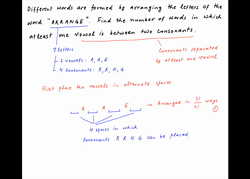 Different words are formed by arranging the letters of the
word "ARRANGE". Find the number of words in which
atleast one vowel is between two consonants.
7 letters
3 vowels: A, A, E
4 consonants: R, R, N, G
Consonants separated
by atleast one vowel
First place the vowels in alternate spaces
A A E → Arranged in 3!/2! ways
4 spaces in which
consonants R R N G can be placed